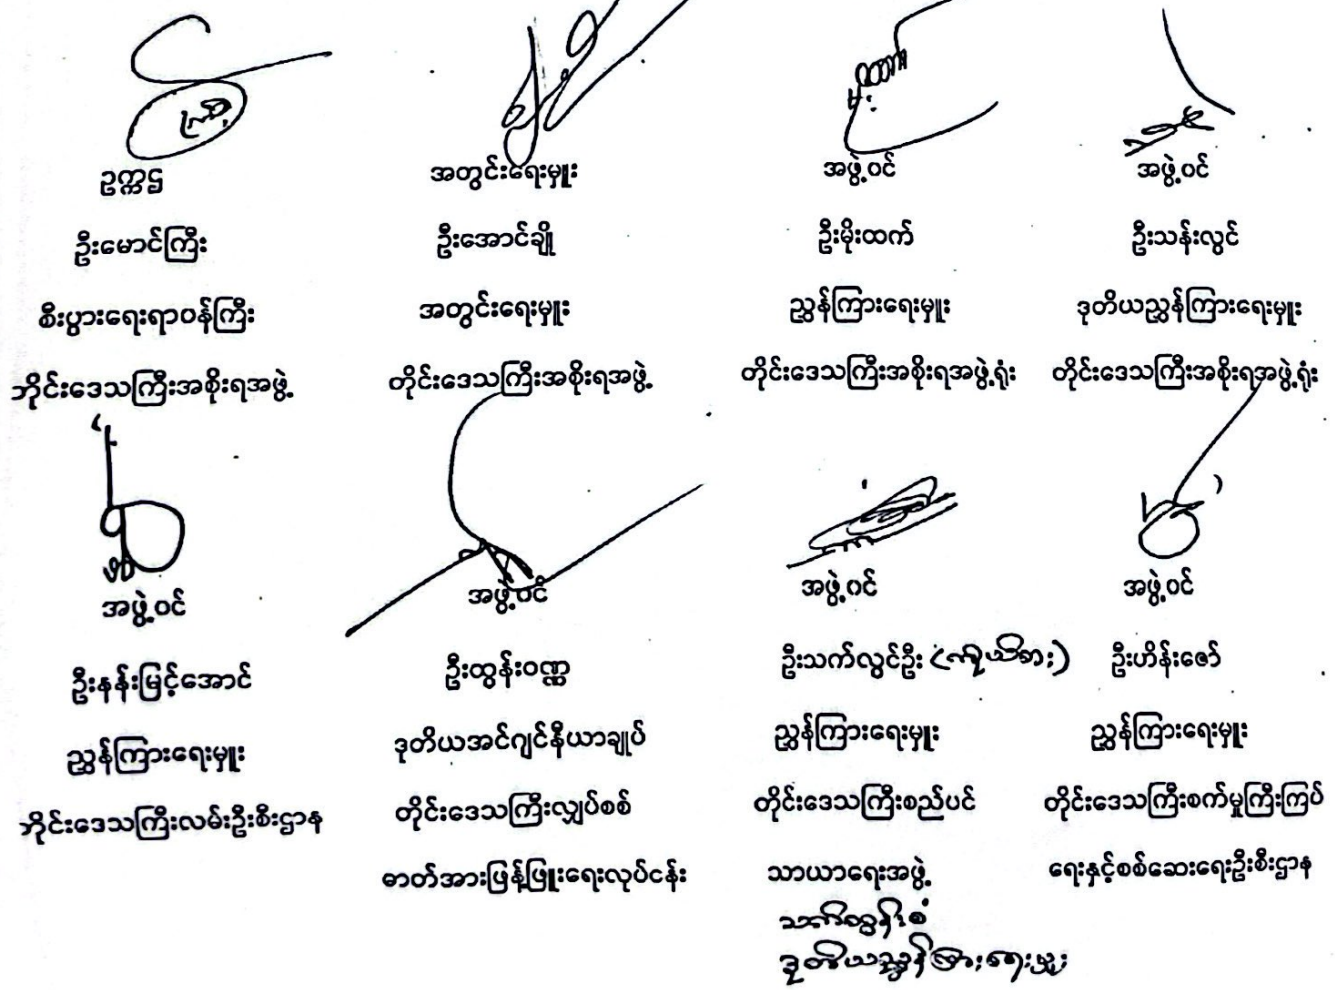 ဥက္ကဌ
ဦးမောင်ကြီး
စီးပွားရေးရာဝန်ကြီး
တိုင်းဒေသကြီးအစိုးရအဖွဲ့
အတွင်းရေးမှူး
ဦးအောင်ချို
အတွင်းရေးမှူး
တိုင်းဒေသကြီးအစိုးရအဖွဲ့
အဖွဲ့ဝင်
ဦးမိုးထက်
ညွှန်ကြားရေးမှူး
တိုင်းဒေသကြီးအစိုးရအဖွဲ့ရုံး
အဖွဲ့ဝင်
ဦးသန်းလွင်
ဒုတိယညွှန်ကြားရေးမှူး
တိုင်းဒေသကြီးအစိုးရအဖွဲ့ရုံး
အဖွဲ့ဝင်
ဦးနန်းမြင့်အောင်
ညွှန်ကြားရေးမှူး
တိုင်းဒေသကြီးလမ်းဦးစီးဌာန
အဖွဲ့ဝင်
ဦးထွန်းဝဏ္ဏ
ဒုတိယအင်ဂျင်နီယာချုပ်
တိုင်းဒေသကြီးလျှပ်စစ်
ဓာတ်အားဖြန့်ဖြူးရေးလုပ်ငန်း
အဖွဲ့ဝင်
ဦးသက်လွင်ဦး (ကိုယ်စား)
ညွှန်ကြားရေးမှူး
တိုင်းဒေသကြီးစည်ပင်
သာယာရေးအဖွဲ့
ဒုတိယညွှန်ကြားရေးမှူး
အဖွဲ့ဝင်
ဦးဟိန်းဇော်
ညွှန်ကြားရေးမှူး
တိုင်းဒေသကြီးစက်မှုကြီးကြပ်
ရေးနှင့်စစ်ဆေးရေးဦးစီးဌာန